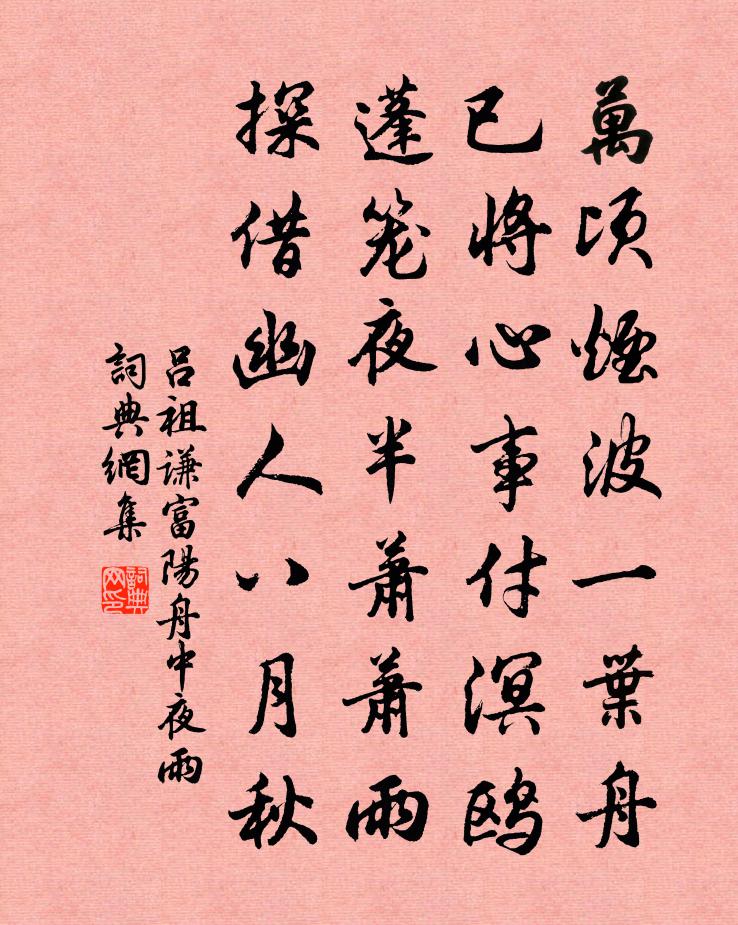 萬頃煙波一葉舟
已將心事付溟鸥
蓬笼夜半蕭蕭雨
探借幽人八月秋
呂祖谦富陽舟中夜雨
詞典網集
詞典网印